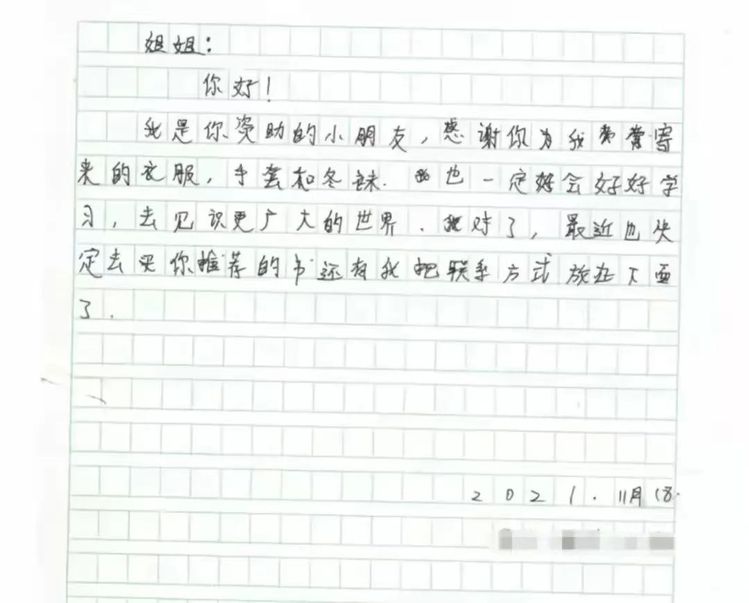 姐姐：
你好！
我是你资助的小朋友，感谢你为我寄
来的衣服，手套和冬袜．我也一定好会好好学
习，去见识更广大的世界．我对了，最近也决
定去买你推荐的书还有我把联系方式放在下面
了．
2021.11月18.